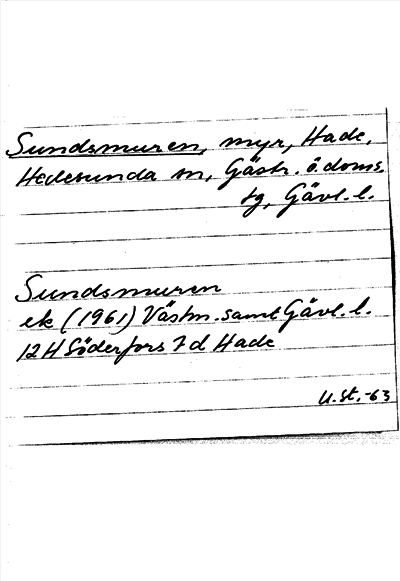 Sundsmuren, myr, Hade,
Hedesunda sn, Gästr. ö. doms.
tg, Gävl. l.
Sundsmuren
ek (1961) Västm. samt Gävl. l.
12 H Söderfors 7 d Hade
U.St.-63